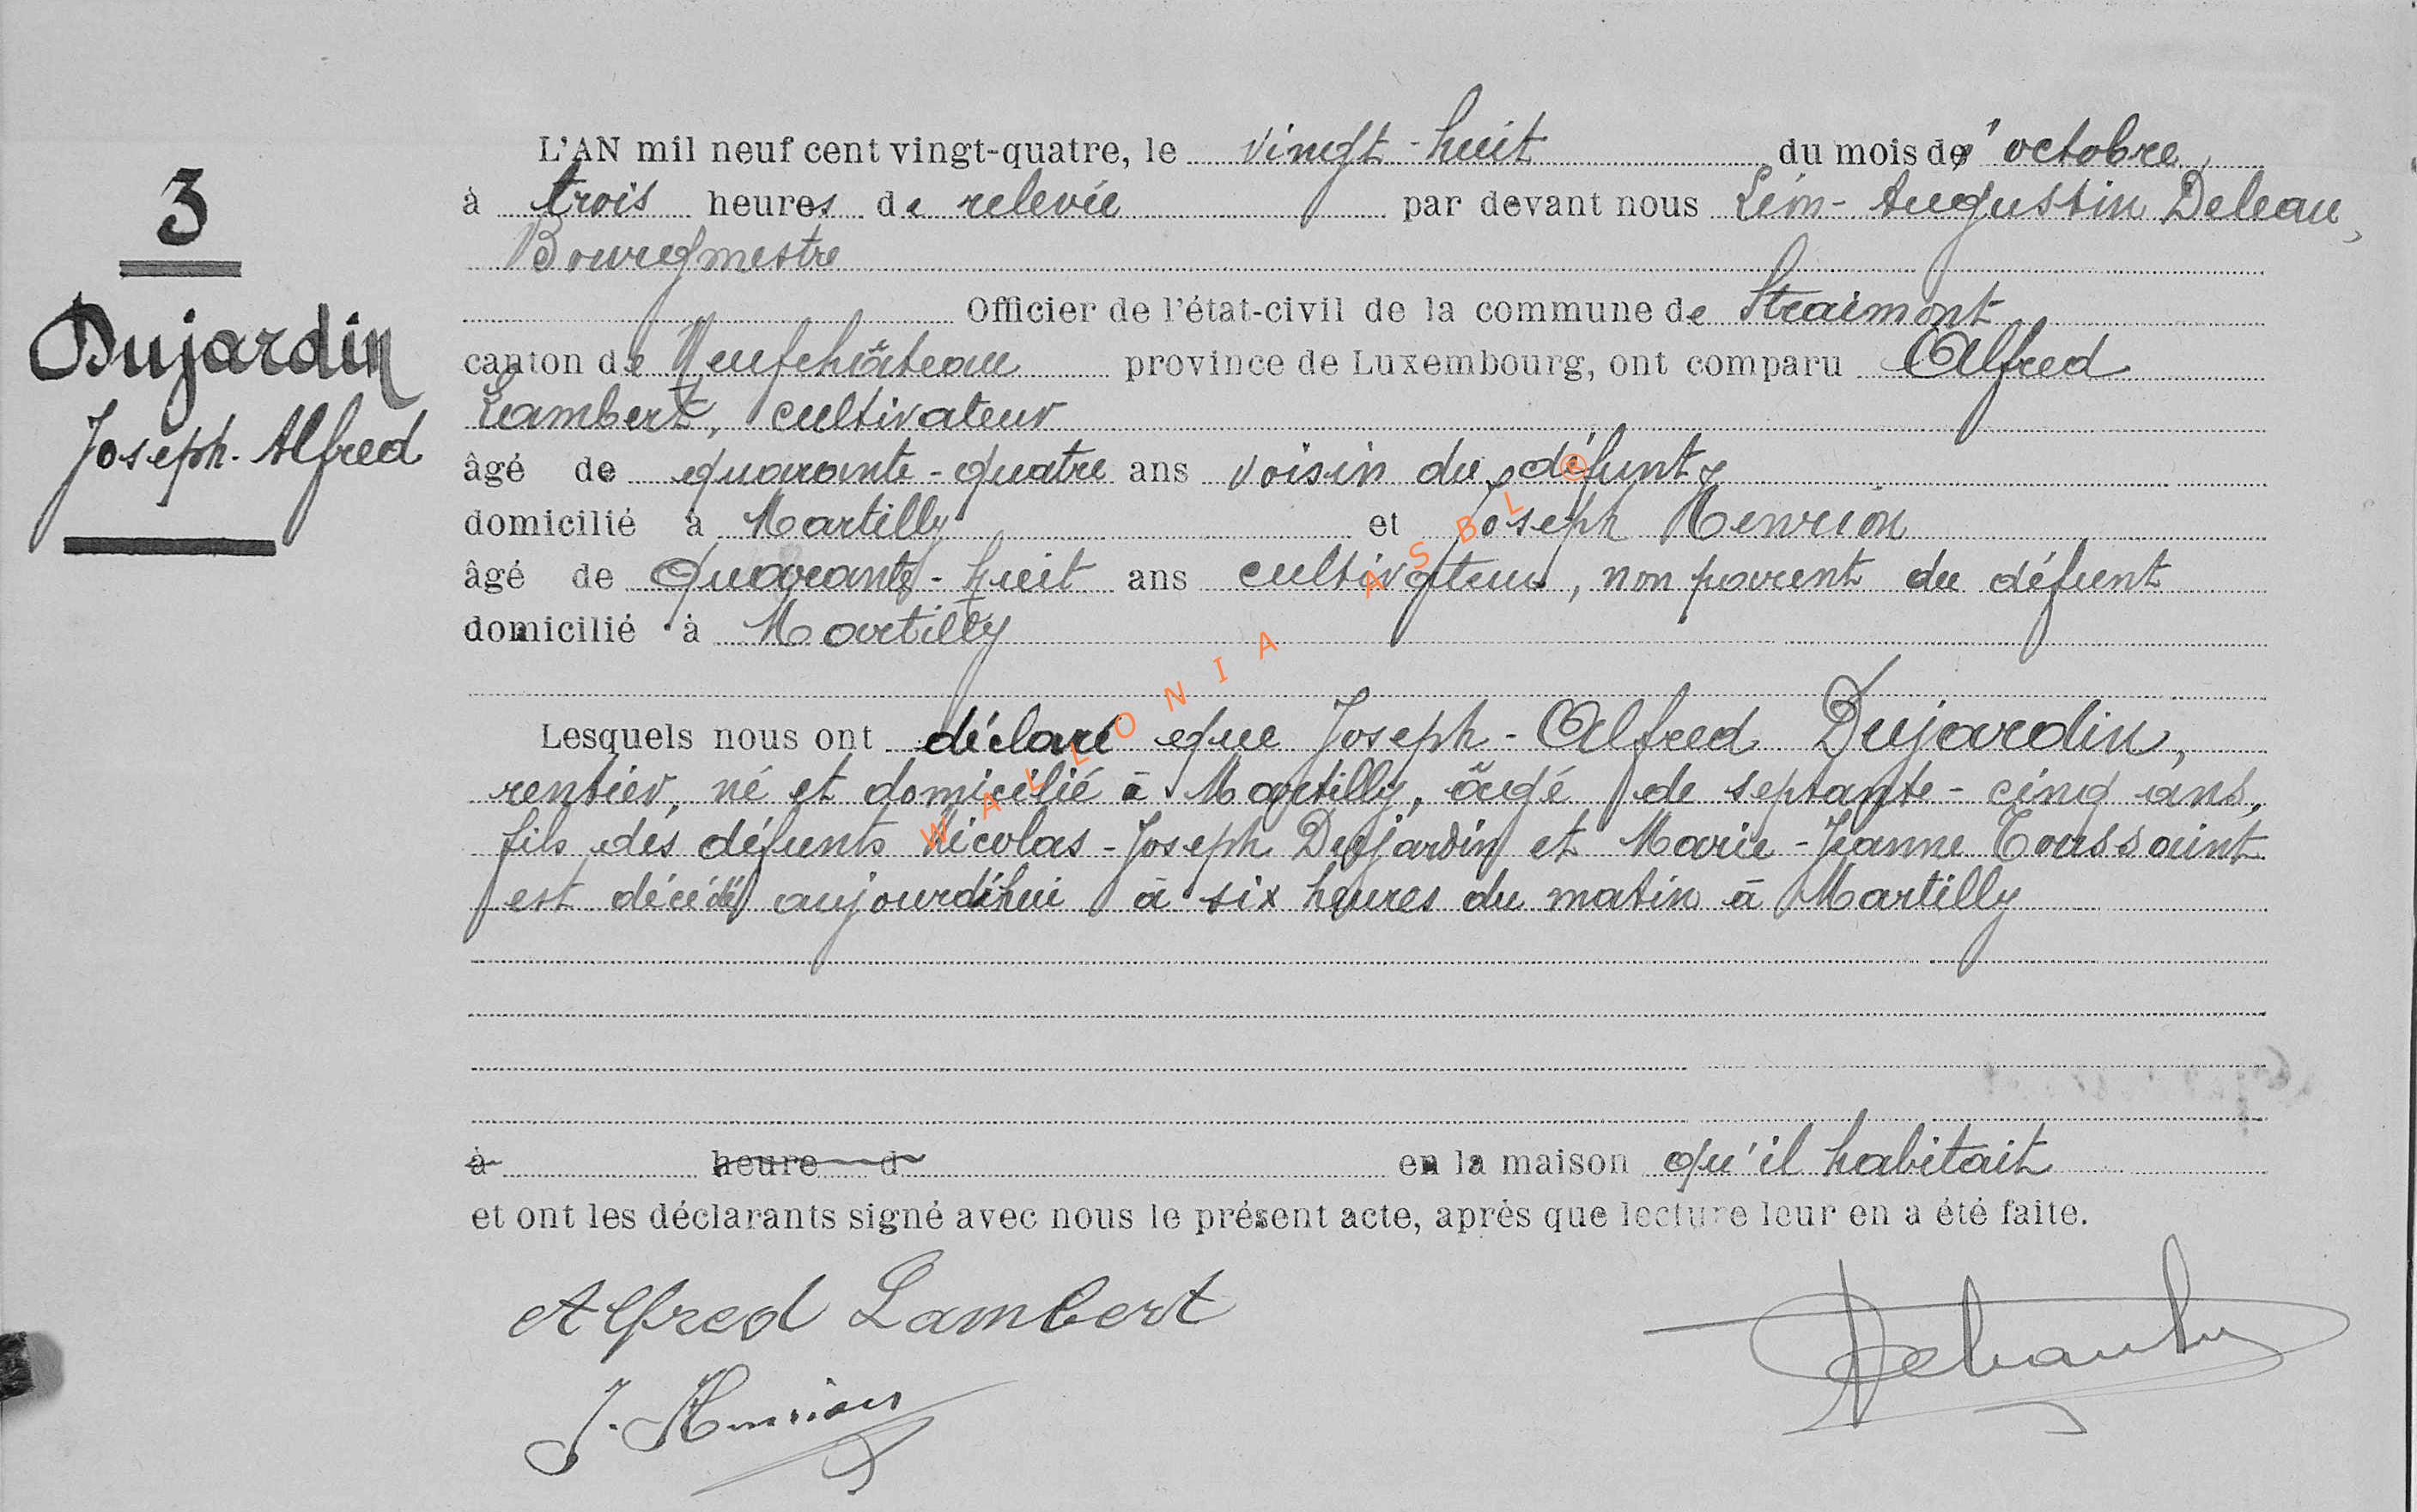 3
Dujardin
Joseph-Alfred
L'AN mil neuf cent vingt-quatre, le vingt-huit du mois d'octobre
à trois heures de relevée par devant nous Augustin Deleau,
Bourgmestre
Officier de l'état-civil de la commune de Straimont
canton de Neufchâteau province de Luxembourg, ont comparu Alfred
Lambert, cultivateur
âgé de quarante-quatre ans voisin du défunt
domicilié à Martilly et Joseph Henrion
âgé de Quarante-huit ans cultivateur, non parent du défunt
domicilié à Martilly
Lesquels nous ont déclaré que Joseph-Alfred Dujardin,
rentier, né et domicilié à Martilly, âgé de septante-cinq ans,
fils des défunts Nicolas-Joseph Dujardin et Marie-Jeanne Toussaint
est décédé aujourd'hui à six heures du matin à Martilly
à heure d en la maison qu'il habitait
et ont les déclarants signé avec nous le présent acte, après que lecture leur en a été faite.
Alfred Lambert
J. Henrion
WALLONIA ASBL ®